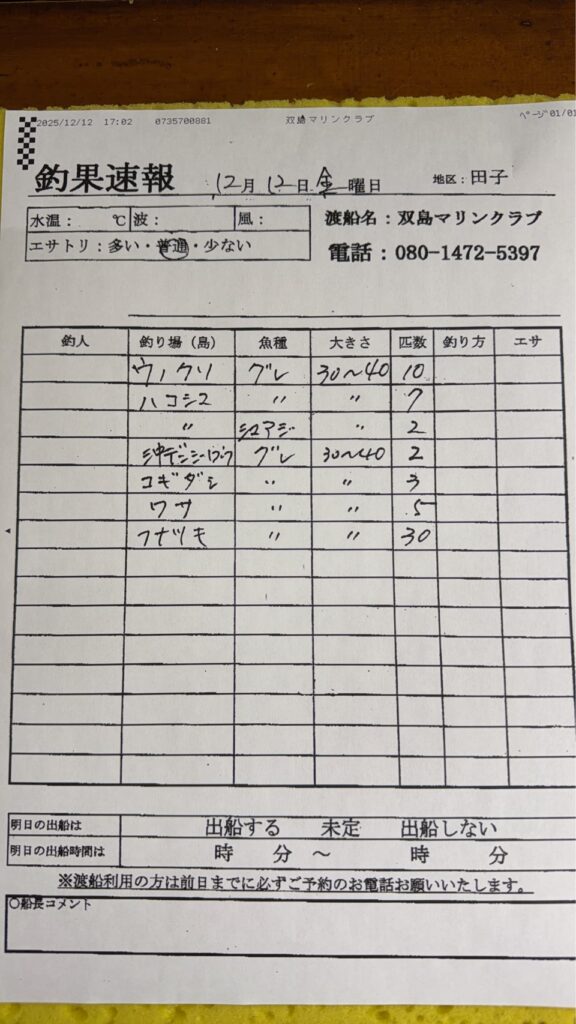 2025/12/12 17:02 0735700881 双島マリンクラブ ページ 01/01
釣果速報 12月12日金曜日 地区：田子
水温： ℃ 波： 風：
エサトリ：多い・普通・少ない
渡船名：双島マリンクラブ
電話：080-1472-5397
釣人 釣り場（島） 魚種 大きさ 匹数 釣り方 エサ
ウノクソ グレ 30～40 10
ハコシマ 〃 〃 7
〃 シマアジ 〃 2
沖デンシャ グレ 30～40 2
コギダシ 〃 〃 3
ワサ 〃 〃 5
フナツキ 〃 〃 30
明日の出船は 出船する 未定 出船しない
明日の出船時間は 時 分 ～ 時 分
※渡船利用の方は前日までに必ずご予約のお電話お願いいたします。
○船長コメント